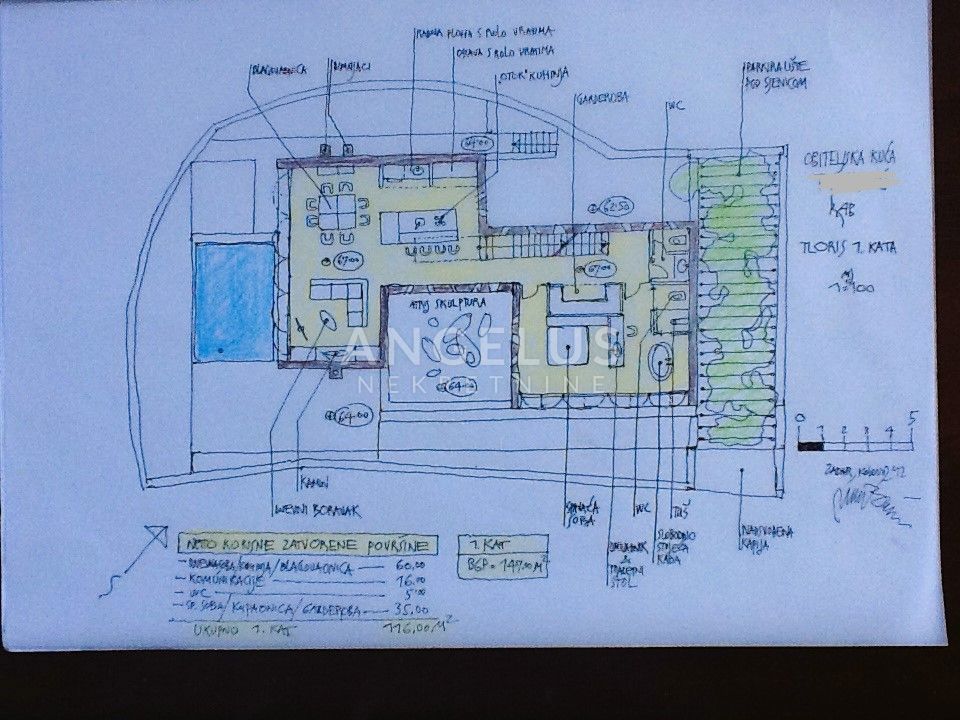 RADNA PLOHA S ROLO VRATIMA
OPRAVA S ROLO VRATIMA
"OTOK" KUHINJA
BLAGOVAONICA
DIMNJACI
GARDEROBA
WC
PARKIRALIŠTE
POD SJENICOM
OBITELJSKA KUĆA
RAB
TLORIS 1. KATA
1:100
64.00
62.50
67.00
67.00
ATRIJ SKULPTURA
ANGELUS
NEKRETNINE
64.00
64.00
0 1 2 3 4 5
KAMIN
DNEVNI BORAVAK
SPAVAĆA
SOBA
WC
TUŠ
SLOBODNO
STOJEĆA
KADA
&
TOALETNI
STOL
NATKRIVENA
KAPIJA
NETO KORISNE ZATVORENE POVRŠINE
DNEVNA SOBA/KUHINJA/BLAGOVAONICA 60,00
KOMUNIKACIJE 16,00
WC 5,00
SP. SOBA/KUPAONICA/GARDEROBA 35,00
UKUPNO 1. KAT 116,00 M²
1. KAT
BGP = 147,00 M²